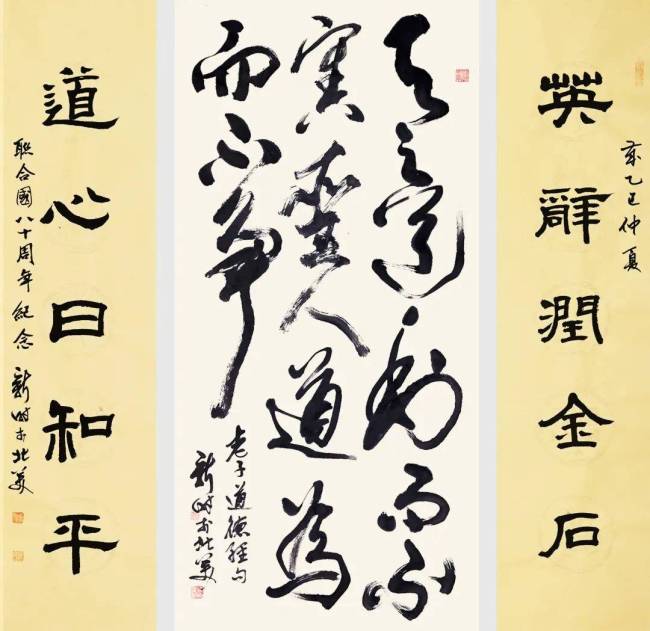 英辭潤金石
歲乙巳仲夏
天之道利而不
害聖人道為
而不爭
老子道德經句
新时於北美
道心日和平
聯合國八十周年紀念 新时於北美